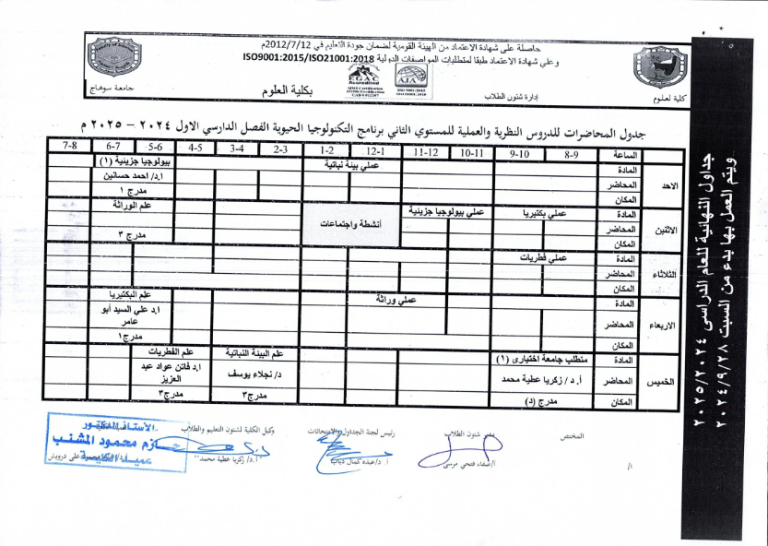 حاصلة على شهادة الاعتماد من الهيئة القومية لضمان جودة التعليم في 2012/7/12م
وعلى شهادة الاعتماد طبقا لمتطلبات المواصفات الدولية ISO9001:2015/ISO21001:2018
EGAC
AJA
كلية العلوم
إدارة شئون الطلاب
بكلية العلوم
جامعة سوهاج
جدول المحاضرات للدروس النظرية والعملية للمستوي الثاني برنامج التكنولوجيا الحيوية الفصل الدارسي الاول ٢٠٢٤ - ٢٠٢٥ م
الساعة 8-9 9-10 10-11 11-12 12-1 1-2 2-3 3-4 4-5 5-6 6-7 7-8
الاحد
المادة عملي بيئة نباتية بيولوجيا جزيئية (١)
المحاضر ا.د/ احمد حسانين
المكان مدرج ١
الاثنين
المادة عملي بكتيريا عملي بيولوجيا جزيئية علم الوراثة
المحاضر أنشطة واجتماعات
المكان مدرج ٣
الثلاثاء
المادة عملي فطريات
المحاضر
المكان
الاربعاء
المادة عملي وراثة علم البكتيريا
المحاضر ا.د علي السيد أبو عامر
المكان مدرج١
الخميس
المادة متطلب جامعة اختياري (١) علم البيئة النباتية علم الفطريات
المحاضر أ. د / زكريا عطية محمد د/ نجلاء يوسف ا.د فاتن عواد عبد العزيز
المكان مدرج (د) مدرج٣ مدرج٣
المختص
مدير شئون الطلاب
رئيس لجنة الجداول والامتحانات
وكيل الكلية لشئون التعليم والطلاب
ا/
ا/صفاء فتحي مرسي
ا.د/عبده كمال دياب
ا.د/ زكريا عطية محمد
الأستاذ الدكتور
حازم محمود المشنب
عميد الكلية
جداول النهائية للعام الدراسى ٢٠٢٥/٢٠٢٤
ويتم العمل بها بدء من السبت ٢٠٢٤/٩/٢٨